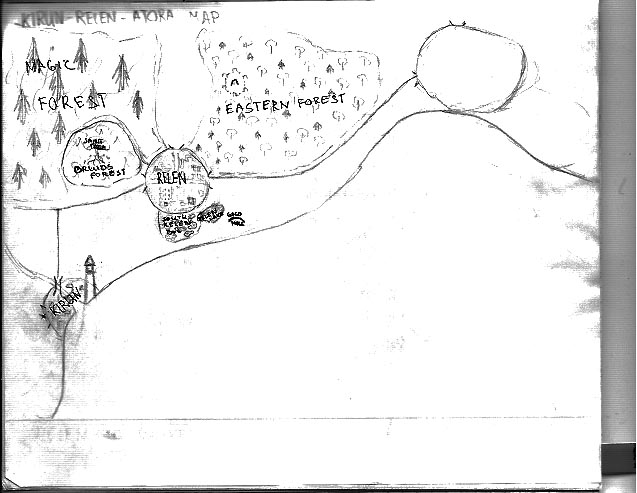 KIRUN-RELEN-ATORA MAP
MAGIC
FOREST
EASTERN FOREST
A
DRUIDS
FOREST
RELEN
SOUTH
RELEN
GOLD
MINE
KIRUN